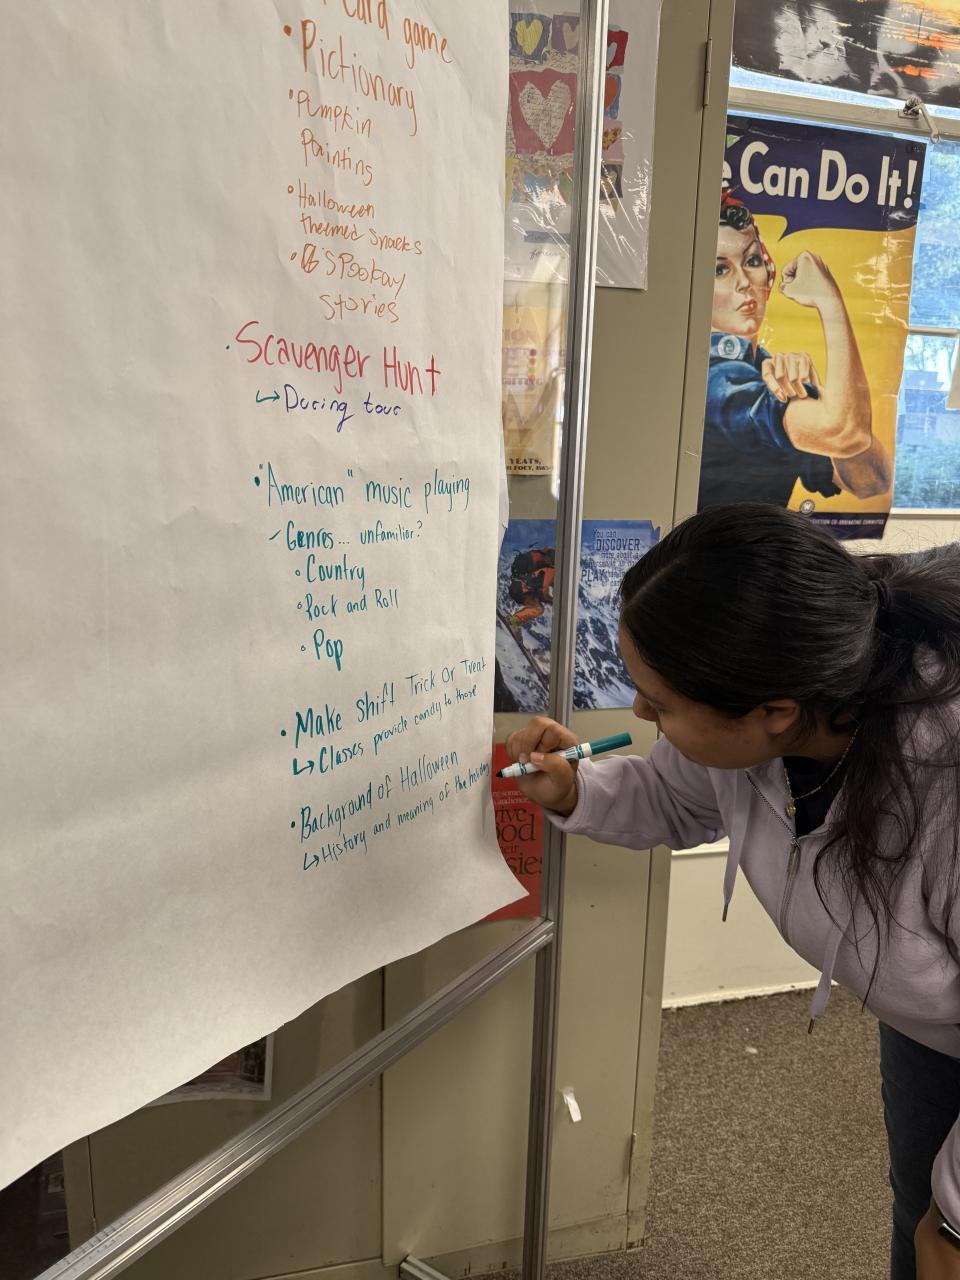 Card game
• Pictionary
• Pumpkin
Painting
• Halloween
themed snacks
• Spookay
stories
• Scavenger Hunt
↳ During tour
• "American" music playing
- Genres... unfamiliar?
◦ Country
◦ Rock and Roll
◦ Pop
• Make shift Trick Or Treat
↳ Classes provide candy to those
• Background of Halloween
↳ History and meaning of the holiday
Can Do It!
YEATS,
You can
DISCOVER
PLAY